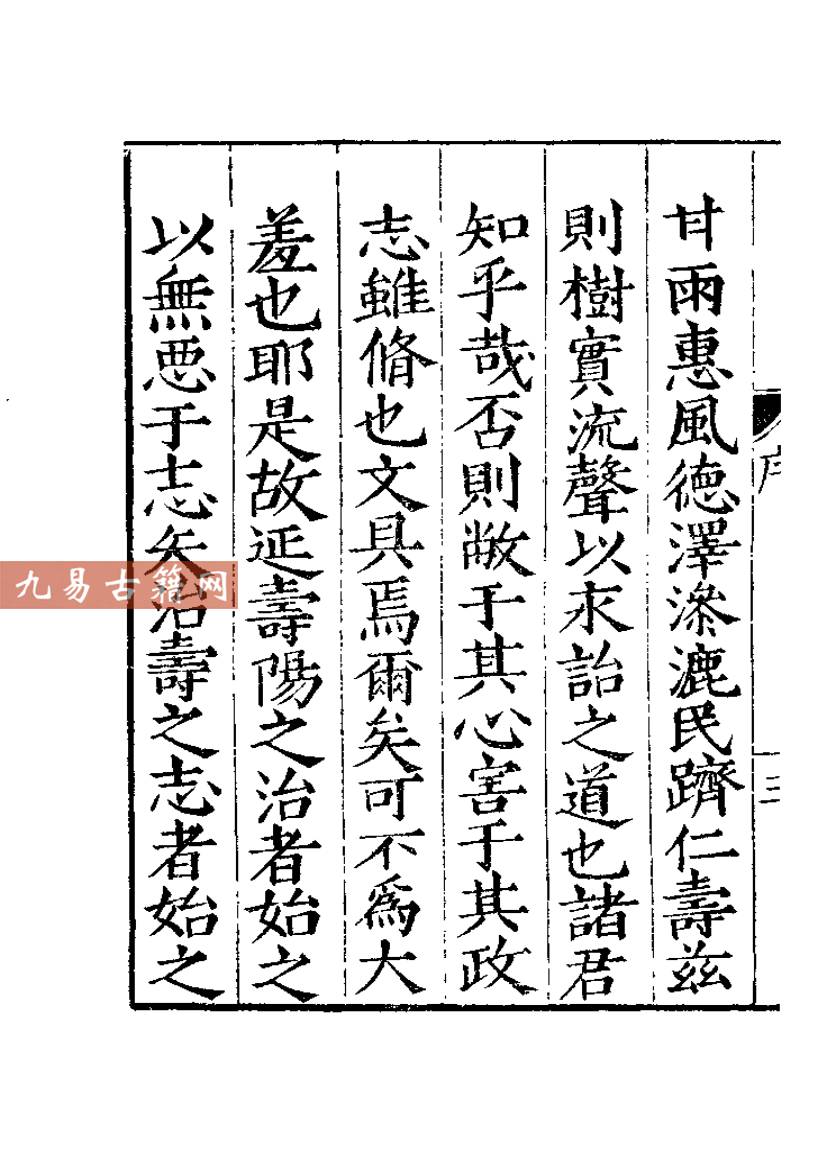 甘雨惠風德澤滲漉民躋仁壽茲
則樹實流聲以求詒之道也諸君
知乎哉否則敝于其心害于其政
志雖脩也文具焉爾矣可不爲大
羞也耶是故延壽陽之治者始之
以無惡于志矣治壽之志者始之
序
三
九易古籍网